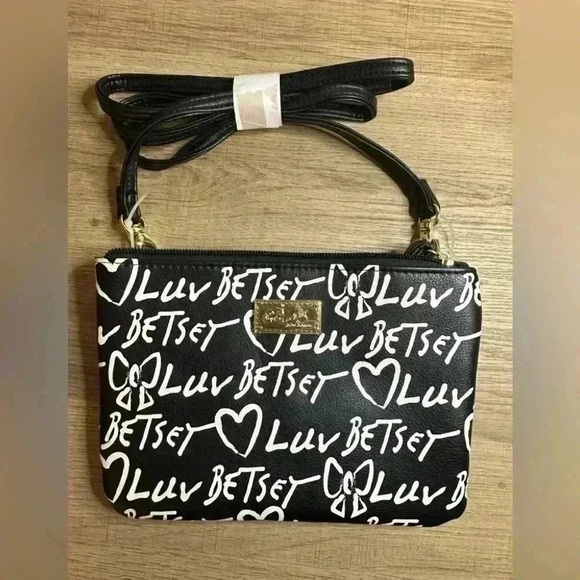 LUV BETSEY
BETSEY LUV BETSEY
LUV BETSEY LU
BETSEY LUV BETSEY
LUV BETSEY LUV BE